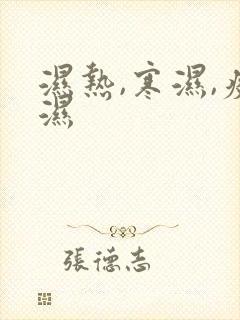 濕熱,寒濕,
濕
張德志